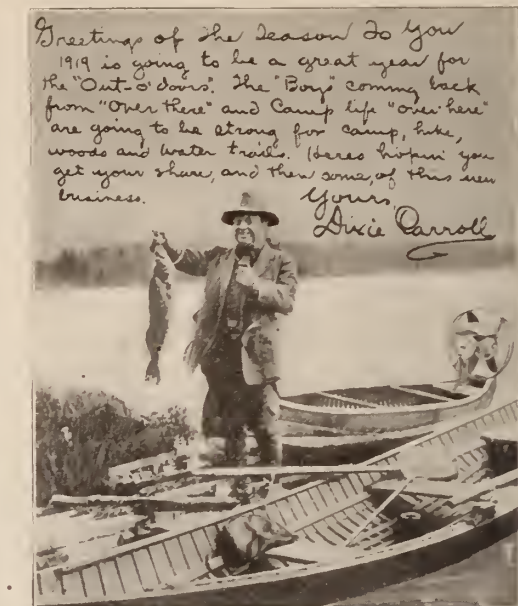 Greetings of the Season To You
1919 is going to be a great year for
the "Out-o'doors". The "Boys" coming back
from "Over there" and Camp life "over here"
are going to be strong for camp, hike,
woods and water trails. Heres hopin' you
get your share, and then some, of this new
business.
Yours,
Dixie Carroll